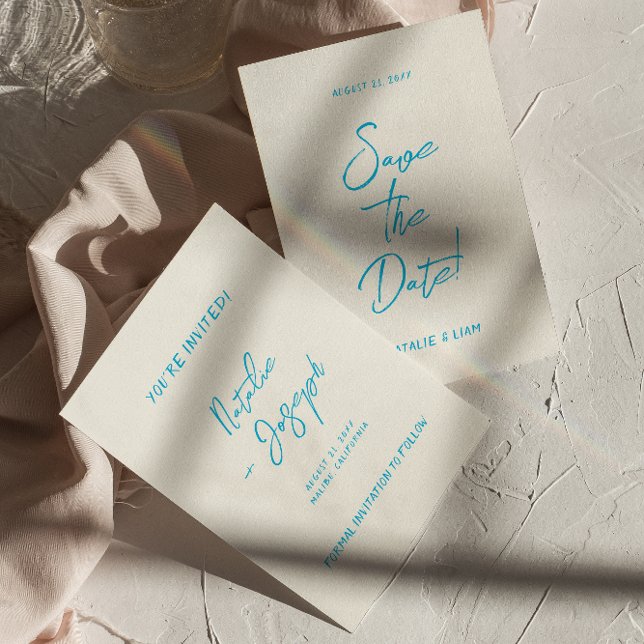 AUGUST 21, 20XX
Save
the
Date!
NATALIE & LIAM
YOU'RE INVITED!
Natalie
+ Joseph
AUGUST 21, 20XX
MALIBU, CALIFORNIA
FORMAL INVITATION TO FOLLOW